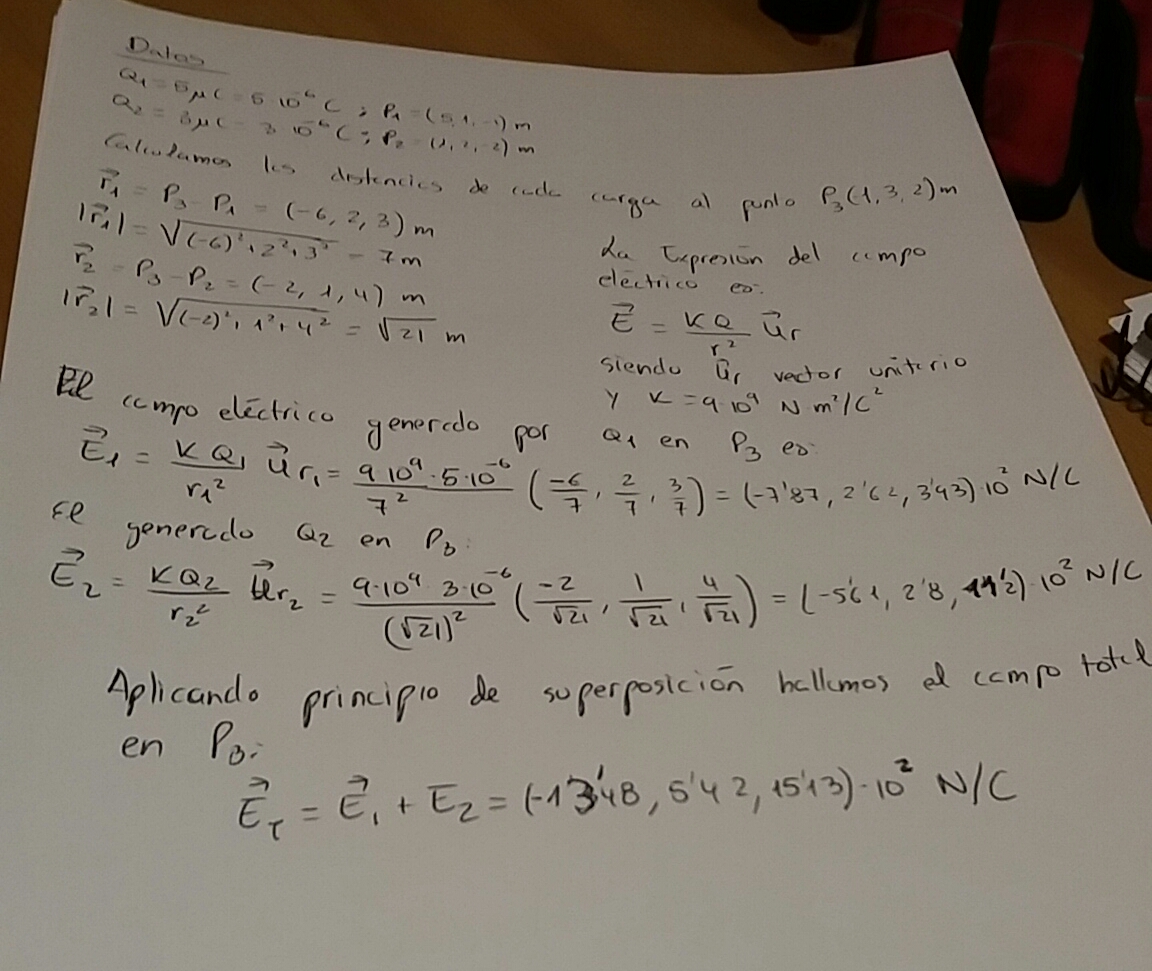 Datos
Q₁ = 5 μC = 5 10⁻⁶ C ; P₁ = (5,1,-1) m
Q₂ = 3 μC = 3 10⁻⁶ C ; P₂ = (1,2,-2) m
Calculamos las distancias de cada carga al punto P₃(1,3,2)m
r⃗₁ = P₃ - P₁ = (-6, 2, 3) m
|r⃗₁| = √((-6)²+2²+3²) = 7m
r⃗₂ = P₃ - P₂ = (-2, 1, 4) m
|r⃗₂| = √((-2)²+1²+4²) = √21 m
La Expresión del campo
eléctrico es:
E⃗ = KQ/r² u⃗r
siendo u⃗r vector unitario
y K = 9·10⁹ N m²/C²
El campo eléctrico generado por Q₁ en P₃ es:
E⃗₁ = KQ₁/r₁² u⃗r₁ = 9 10⁹ · 5·10⁻⁶/7² (-6/7, 2/7, 3/7) = (-7'87, 2'62, 3'93)·10² N/C
El generado Q₂ en P₃:
E⃗₂ = KQ₂/r₂² u⃗r₂ = 9·10⁹ 3·10⁻⁶/(√21)² (-2/√21, 1/√21, 4/√21) = (-5'61, 2'8, 11'2)·10² N/C
Aplicando principio de superposición hallamos el campo total
en P₃:
E⃗T = E⃗₁ + E₂ = (-13'48, 5'42, 15'13)·10² N/C